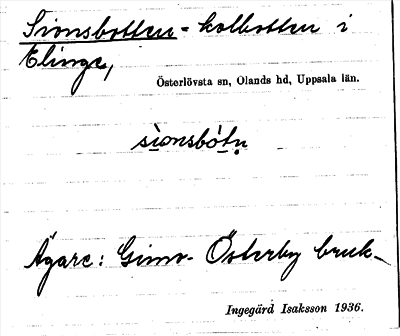 Sionsbotten - kolbotten i
Elinge,
Österlövsta sn, Olands hd, Uppsala län.
sìonsbót̥n̥
Ägare: Gimo- Österby bruk-
Ingegärd Isaksson 1936.